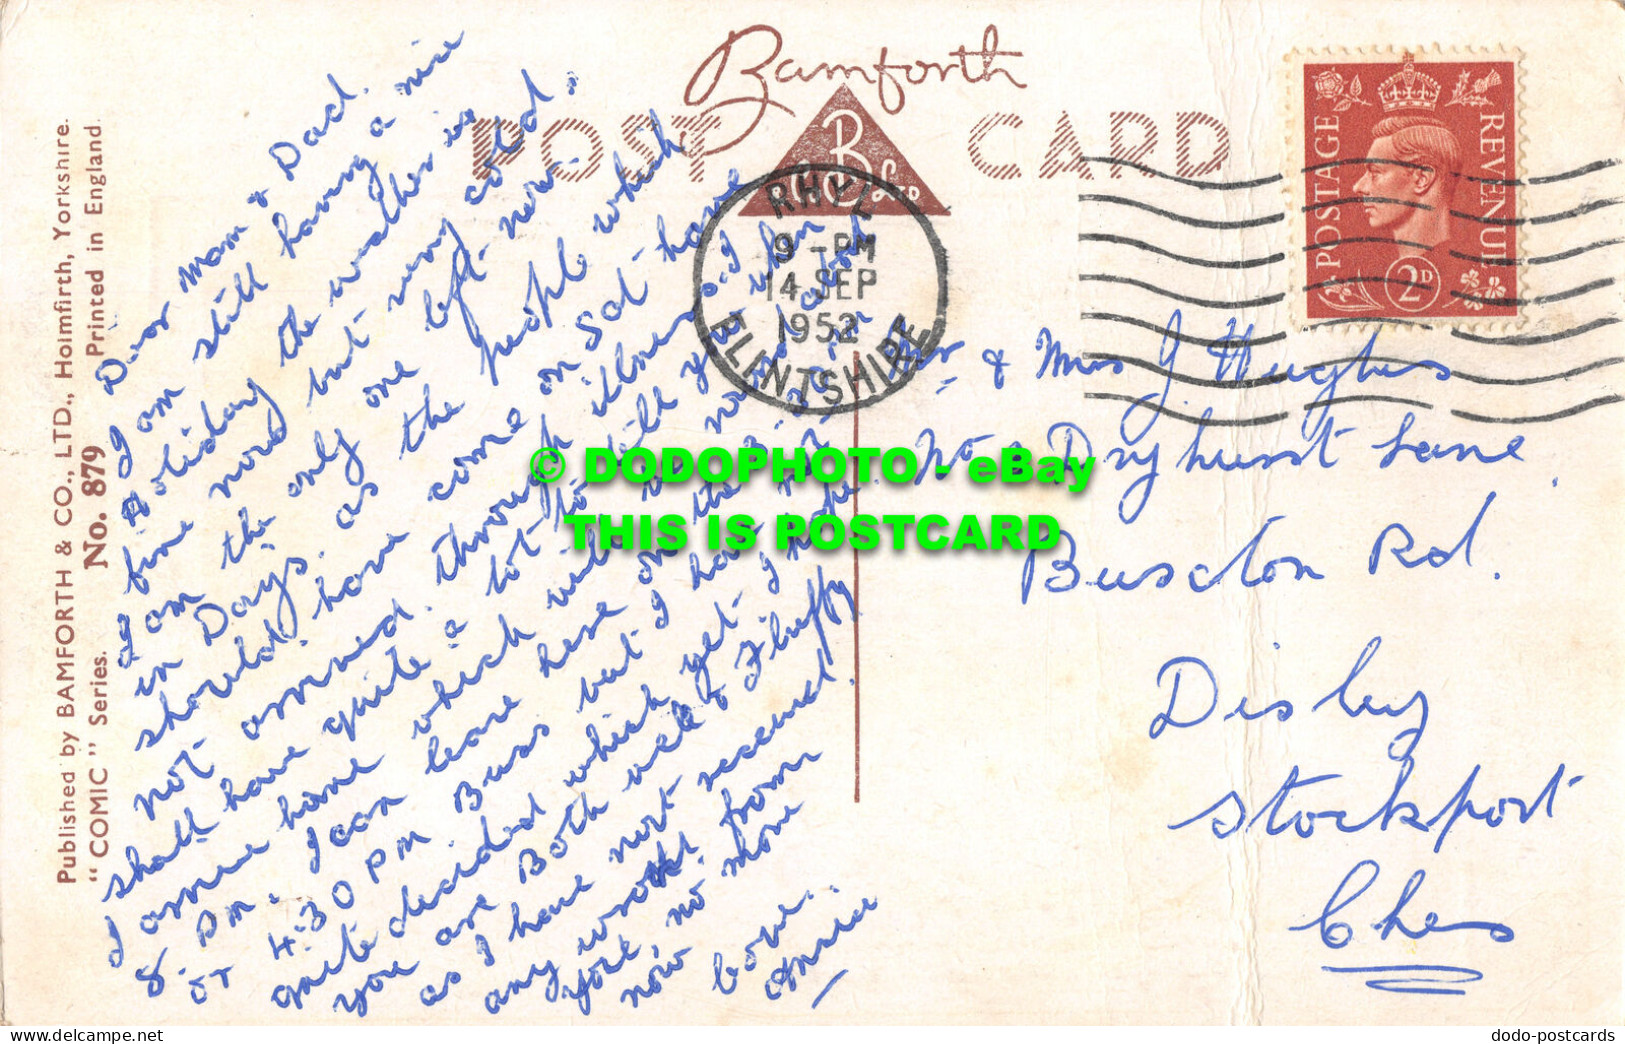 Bamforth
POST CARD
B
& Co Ltd
POSTAGE REVENUE
2D
RHYL
9 - PM
14 SEP
1952
FLINTSHIRE
Published by BAMFORTH & CO., LTD., Holmfirth, Yorkshire.
"COMIC" Series. No. 879 Printed in England.
Dear Mam & Dad.
I am still having a nice
Holiday the weather is
fine now but very cold,
I am the only one left now.
in Days. as the people which
should have come on Sat have
not arrived. through illness. I
shall have quite a lot to tell you when
I arrive home which will be now about
8. PM. I can leave here on the
or 4.30 PM Buss but I have not
quite decided which yet I hope
you are Both well & Fluffy
as I have not received
any word from
you, no more
now
Love.
Annie
Mr & Mrs J. Hughes
Dryhurst Lane
Buxton Rd.
Disley
Stockport
Ches
© DODOPHOTO - eBay
THIS IS POSTCARD
dodo-postcards